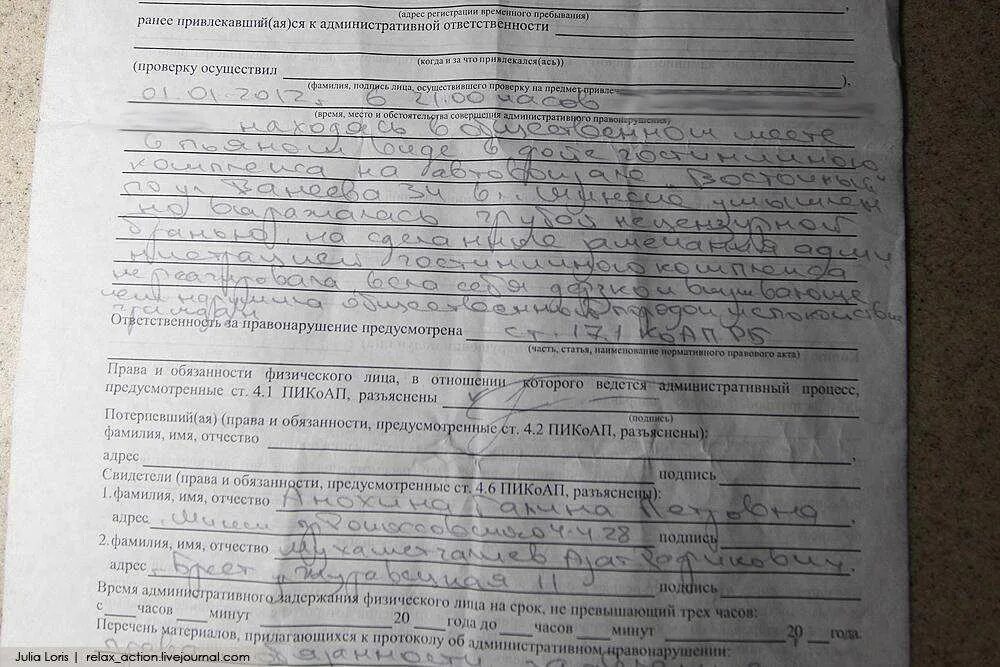 (адрес регистрации временного пребывания)
ранее привлекавший(ая)ся к административной ответственности
(когда и за что привлекался(ась))
(проверку осуществил
),
(фамилия, подпись лица, осуществившего проверку на предмет привлеч
01.01.2012г. в 21.00 часов
(время, место и обстоятельства совершения административного правонарушения)
находясь в общественном месте
в пьяном виде в фойе гостиничного
комплекса на автовокзале Восточный
по ул. Ванеева 34 в г. Минске умышлен
но выражалась грубой нецензурной
бранью, на сделанные замечания адми
нистрацией гостиничного комплекса
не реагировала, вела себя дерзко и вызывающе
чем нарушила общественный порядок и спокойствие
граждан
Ответственность за правонарушение предусмотрена ст. 17.1 КоАП РБ
(часть, статья, наименование нормативного правового акта)
Права и обязанности физического лица, в отношении которого ведется административный процесс,
предусмотренные ст. 4.1 ПИКоАП, разъяснены
(подпись)
Потерпевший(ая) (права и обязанности, предусмотренные ст. 4.2 ПИКоАП, разъяснены):
фамилия, имя, отчество ,
адрес подпись
Свидетели (права и обязанности, предусмотренные ст. 4.6 ПИКоАП, разъяснены):
1. фамилия, имя, отчество Анохина Галина Петровна ,
адрес Минск подпись
2. фамилия, имя, отчество Азат ,
адрес Брест 11 подпись
Время административного задержания физического лица на срок, не превышающий трех часов:
с часов минут 20 года до часов минут 20 года.
Перечень материалов, прилагающихся к протоколу об административном правонарушении:
Julia Loris | relax_action.livejournal.com